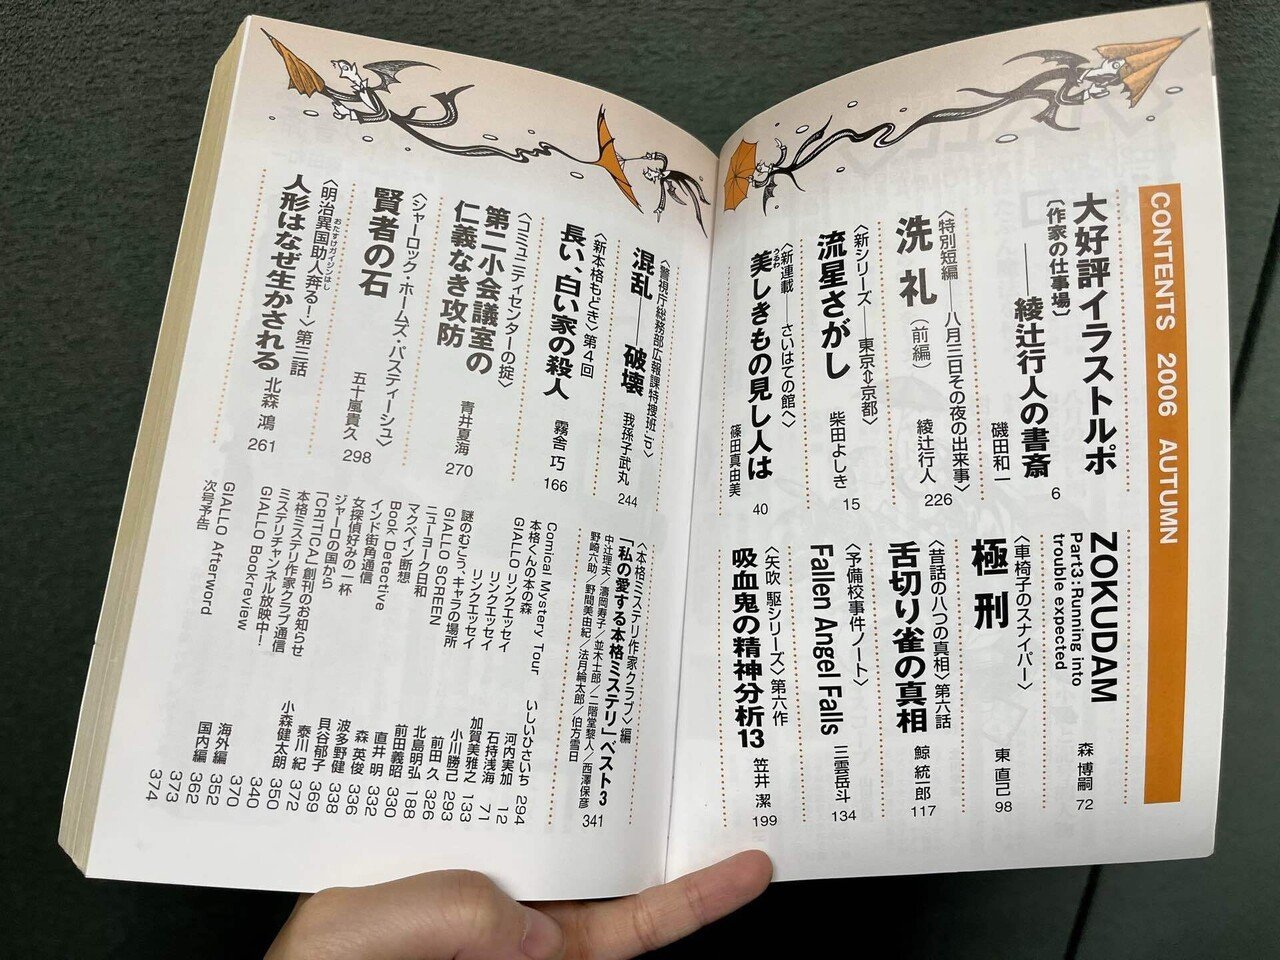 CONTENTS 2006 AUTUMN
大好評イラストルポ
〔作家の仕事場〕
――綾辻行人の書斎
磯田和一
6
〈特別短編――八月三日その夜の出来事〉
洗礼(前編)
綾辻行人
226
〈新シリーズ――東京⇔京都〉
流星さがし
柴田よしき
15
〈新連載――さいはての館へ〉
うるわ
美しきもの見し人は
篠田真由美
40
ZOKUDAM
Part3:Running into
trouble expected
森 博嗣
72
〈車椅子のスナイパー〉
極刑
東 直己
98
〈昔話の八つの真相〉第六話
舌切り雀の真相
鯨 統一郎
117
〈予備校事件ノート〉
Fallen Angel Falls
三雲岳斗
134
〈矢吹 駆シリーズ〉第六作
吸血鬼の精神分析13
笠井 潔
199
〈警視庁総務部広報課特捜班.jp〉
混乱――破壊
我孫子武丸
244
〈新本格もどき〉第4回
長い、白い家の殺人
霧舎 巧
166
〈コミュニティセンターの掟〉
第二小会議室の
仁義なき攻防
青井夏海
270
〈シャーロック・ホームズ・パスティーシュ〉
賢者の石
五十嵐貴久
298
おたすけガイジンはし
〈明治異国助人奔る!〉第三話
人形はなぜ生かされる
北森 鴻
261
〈本格ミステリ作家クラブ〉編
「私の愛する本格ミステリ」ベスト3
中辻理夫/濤岡寿子/並木士郎/二階堂黎人/西澤保彦
野崎六助/野間美由紀/法月綸太郎/伯方雪日
341
Comical Mystery Tour いしいひさいち 294
本格くんの本の森 河内実加 12
GIALLO リンクエッセイ 石持浅海 71
リンクエッセイ 加賀美雅之 133
リンクエッセイ 小川勝己 293
謎のむこう、キャラの場所 前田 久 326
GIALLO SCREEN 北島明弘 188
ニューヨーク日和 前田義昭 330
マクベイン断想 直井 明 332
Book Detective 森 英俊 336
インド街角通信 波多野健 338
女探偵好みの一杯 貝谷郁子 369
ジャーロの国から 泰川 紀 372
「CRITICA」創刊のお知らせ 小森健太朗 350
本格ミステリ作家クラブ通信 340
ミステリチャンネル放映中! 370
GIALLO Bookreview 海外編 352
国内編 362
GIALLO Afterword 373
次号予告 374